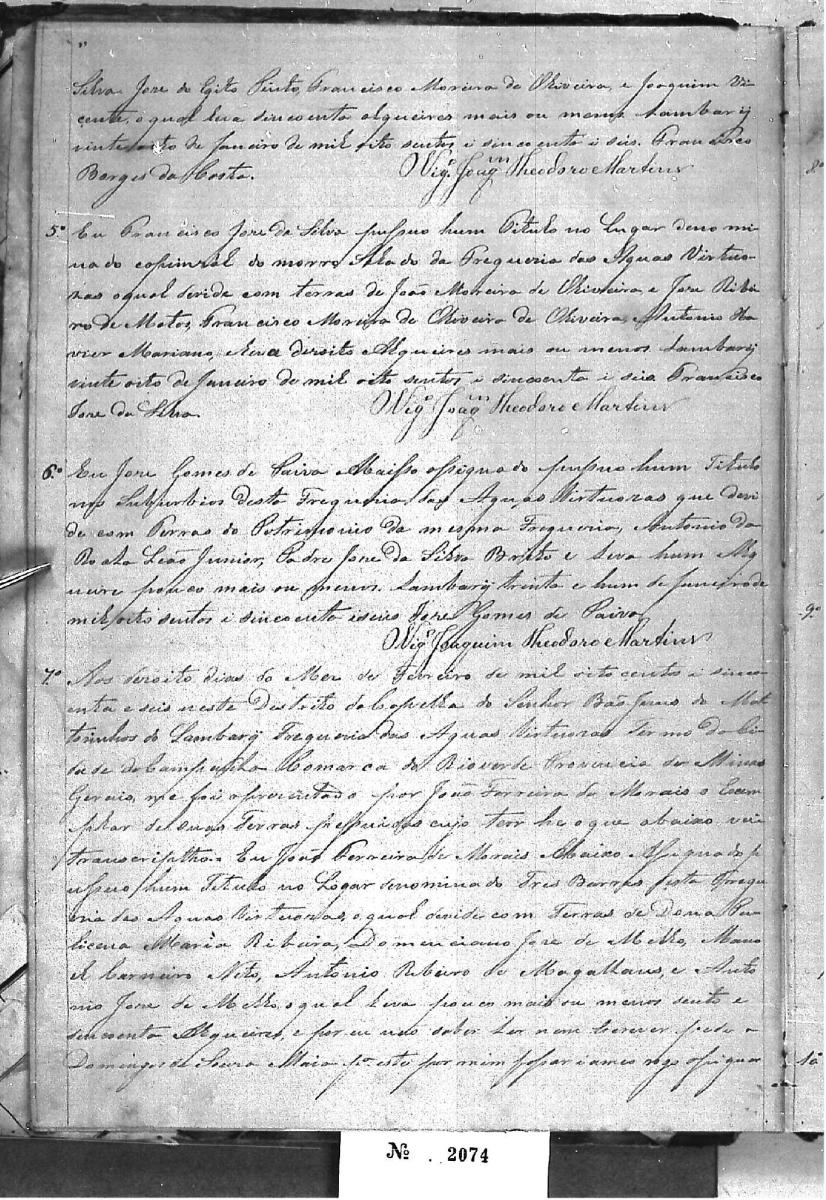 Silva Jose do Egito Pinto, Francisco Moreira de Oliveira, e Joaquim Vi
cente, o qual leva sincoenta alqueires mais ou menos Lambary
vinte oito de Janeiro de mil oito sentos i sincoenta i seis. Francisco
Borges da Costa. Vigº Joaqm Theodoro Martins
5º Eu Francisco Jose da Silva pussuo hum Titulo no Lugar denomi
nado do morro Selado da Freguezia das Aguas Virtuo
zas o qual devide com terras de João Moreira de Oliveira, e Jose Ribei
ro de Matos, Francisco Moreira de Oliveira de Oliveira, Antonio Xa
vier Mariano, leva dizoito Alqueires mais ou menos Lambary
vinte oito de Janeiro de mil oito sentos i sincoenta i seis Francisco
Jose da Silva. Vigº Joaqm Theodoro Martins
6º Eu Jose Gomes de Paiva Abaixo asignado pussuo hum Titulo
nos Suburbios desta Freguezia das Aguas Virtuozas que devi
de com Terras do Patrimonio da mesma Freguezia, Antonio da
Rosta Leão Junior, Padre Jose da Silva Brito e leva hum Alq
ueire pouco mais ou menos. Lambary trinta e hum de Janeiro de
mil oito sentos i sincoenta i seis Jose Gomes de Paiva
Vigº Joaquim Theodoro Martins
7º Aos dezoito dias do Mez de Fevreiro de mil oito centos i sinco
enta e seis neste Destrito da Capella do Senhor Bão Jezus de Mat
tozinhos do Lambary Freguezia das Aguas Virtuozas Termo da Ci
dade da Campanha Comarca do Rioverde Provincia de Minas
Gerais, me foi aprezentado por João Ferreira de Morais o Exem
plar de suas Terras pussuidas cujo teor he o que abaixo vai
transcripto. Eu João Ferreira de Morais Abaixo Asignado p
ussuo hum Titulo no Logar denominado Tres Barras desta Fregu
ezia das Aguas Virtuozas, o qual devide com Terras de Dona Pu
licena Maria Ribeira, Domenciano Jose de Mello, Mano
el Carneiro Neto, Antonio Ribeiro de Magalhaus, e Anto
nio Jose de Mello, o qual leva pouco mais ou menos sento e
sincoenta Alqueires, e por eu não saber Ler nem Escrever pedi a
Domingos de Souza Maia pª este por mim e a meu rogo asignar
8º
9º
10º
Nº 2074